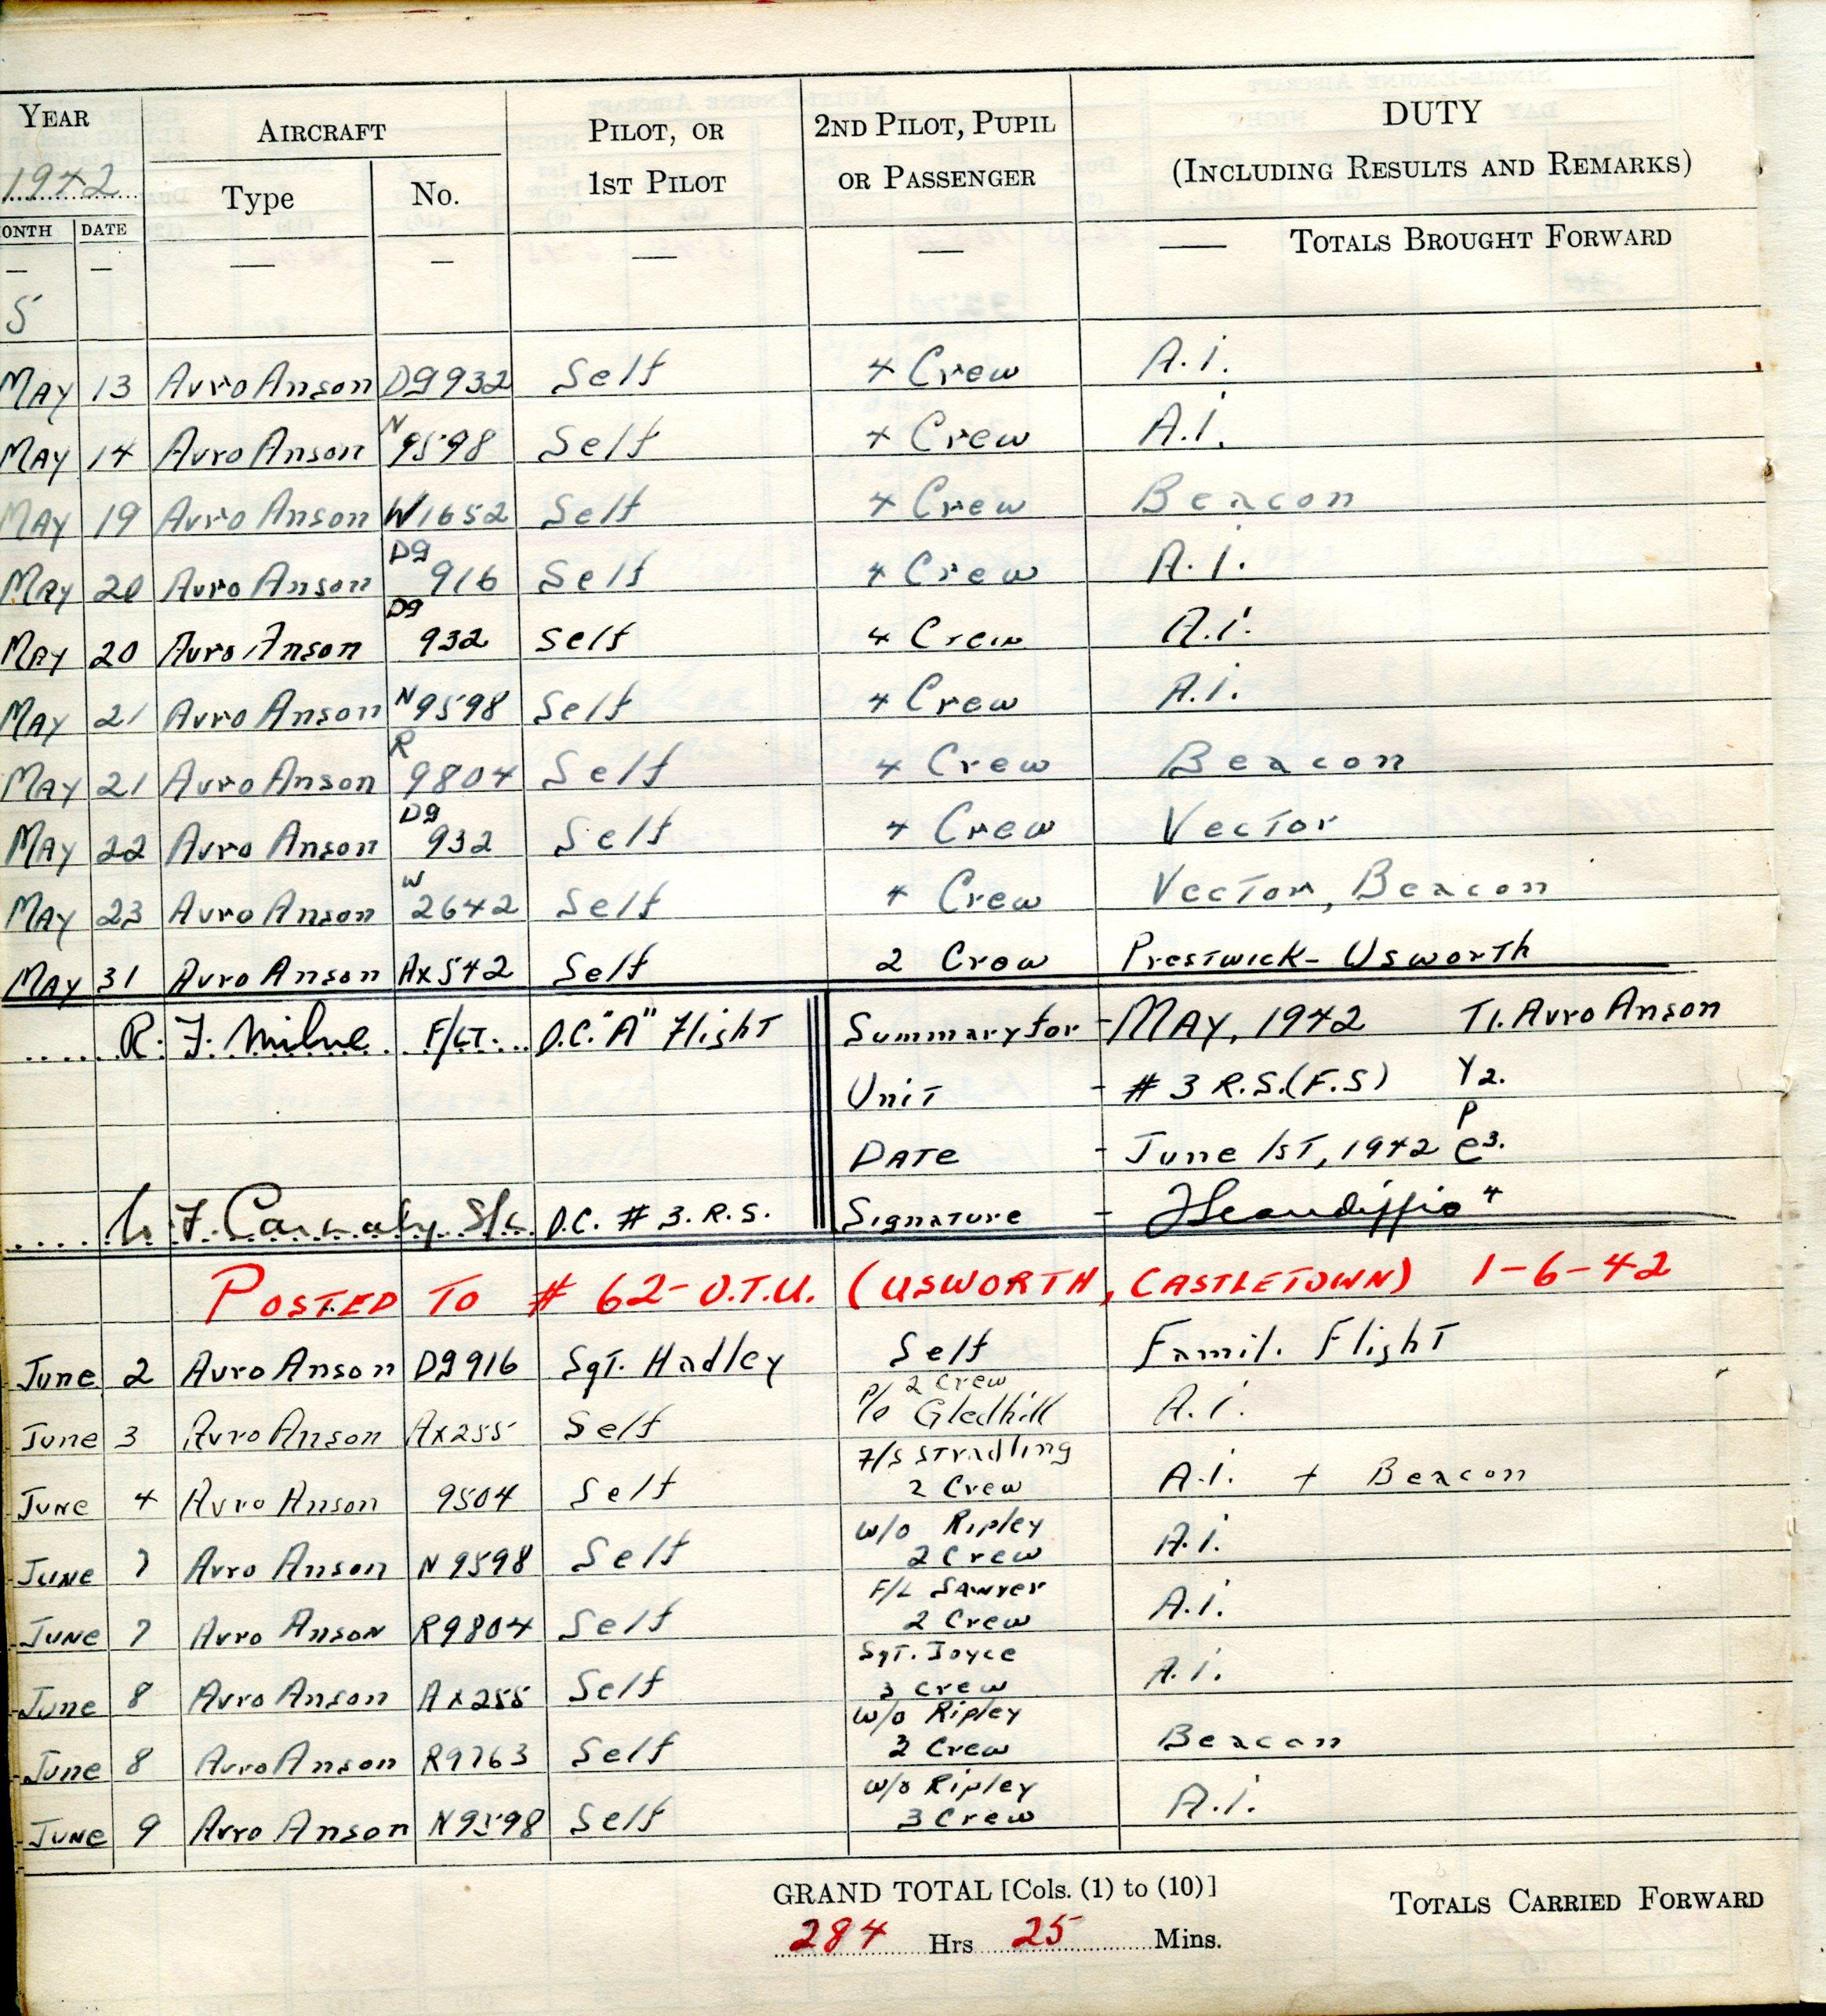 YEAR AIRCRAFT PILOT, OR 2ND PILOT, PUPIL DUTY
1942 Type No. 1ST PILOT OR PASSENGER (INCLUDING RESULTS AND REMARKS)
ONTH DATE
— — — — — — — TOTALS BROUGHT FORWARD
5
MAY 13 Avro Anson DG932 Self 4 Crew A.i.
MAY 14 Avro Anson N9598 Self 4 Crew A.i.
MAY 19 Avro Anson W1652 Self 4 Crew Beacon
MAY 20 Avro Anson DG916 Self 4 Crew A.i.
MAY 20 Avro Anson DG932 Self 4 Crew A.i.
MAY 21 Avro Anson N9598 Self 4 Crew A.i.
MAY 21 Avro Anson R9804 Self 4 Crew Beacon
MAY 22 Avro Anson DG932 Self 4 Crew Vector
MAY 23 Avro Anson W2642 Self 4 Crew Vector, Beacon
MAY 31 Avro Anson AX542 Self 2 Crew Prestwick - Usworth
R. F. Milne F/LT. O.C. "A" Flight Summary for - MAY, 1942 T1. Avro Anson
Unit - # 3 R.S.(F.S) Y2.
DATE - June 1ST, 1942 P e3.
F. Carnaby S/L O.C. # 3. R.S. Signature - 4
POSTED TO # 62 - O.T.U. (USWORTH, CASTLETOWN) 1-6-42
June 2 Avro Anson DG916 Sgt. Hadley Self 2 Crew Famil. Flight
June 3 Avro Anson AX255 Self P/O Gledhill A.i.
June 4 Avro Anson 9504 Self F/S Stradling 2 Crew A.i. + Beacon
June 7 Avro Anson N9598 Self W/O Ripley 2 Crew A.i.
June 7 Avro Anson R9804 Self F/L Sawyer 2 Crew A.i.
June 8 Avro Anson AX255 Self Sgt. Joyce 3 Crew A.i.
June 8 Avro Anson R9763 Self W/O Ripley 3 Crew Beacon
June 9 Avro Anson N9598 Self W/O Ripley 3 Crew A.i.
GRAND TOTAL [Cols. (1) to (10)] TOTALS CARRIED FORWARD
284 Hrs 25 Mins.